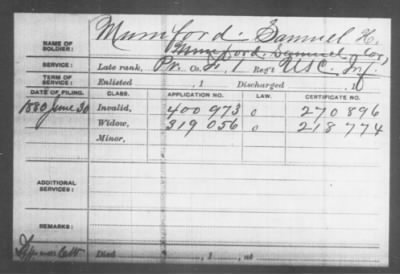 Mumford - Samuel H.
NAME OF SOLDIER:
Mumford, Samuel
SERVICE: Late rank, Pv. Co. 1 Reg't U S C. Inf.
TERM OF SERVICE: Enlisted , 1 Discharged , 1
DATE OF FILING. CLASS. APPLICATION NO. LAW. CERTIFICATE NO.
1880 June 30 Invalid, 400 973 0 270 896
Widow, 319 056 0 218 774
Minor,
ADDITIONAL SERVICES:
REMARKS:
Died , 1 , at